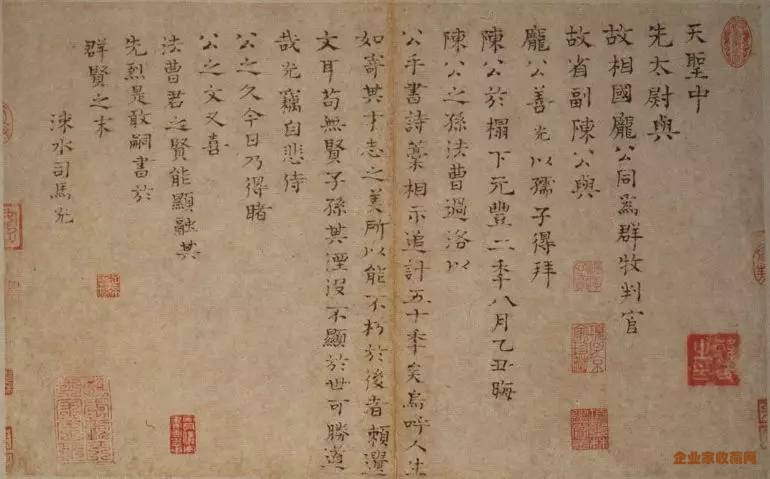 天聖中
先太尉與
故相國龐公同爲群牧判官
故省副陳公與
龐公善光以孺子得拜
陳公於榻下元豐二年八月乙丑晦
陳公之孫法曹過洛以
公手書詩藁相示追計五十年矣嗚呼人生
如寄其才志之美所以能不朽於後者賴遺
文耳苟無賢子孫其湮沒不顯於世可勝道
哉光竊自悲侍
公之久今日乃得睹
公之文又喜
法曹君之賢能顯融其
先烈是敢嗣書於
群賢之末
涑水司馬光
企业家收藏网